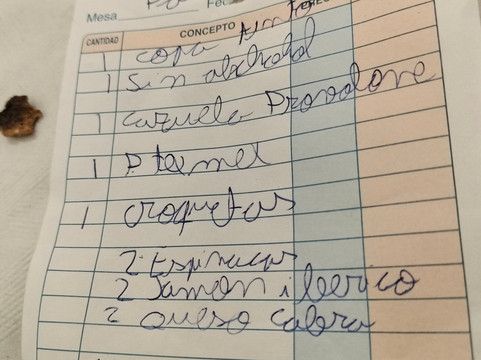 Mesa
CANTIDAD CONCEPTO
1 copa tinto
1 Sin alcohol
1 cazuela Provolone
1 P. ternel
1 croquetas
2 Espinacas
2 Jamon iberico
2 Queso cabra